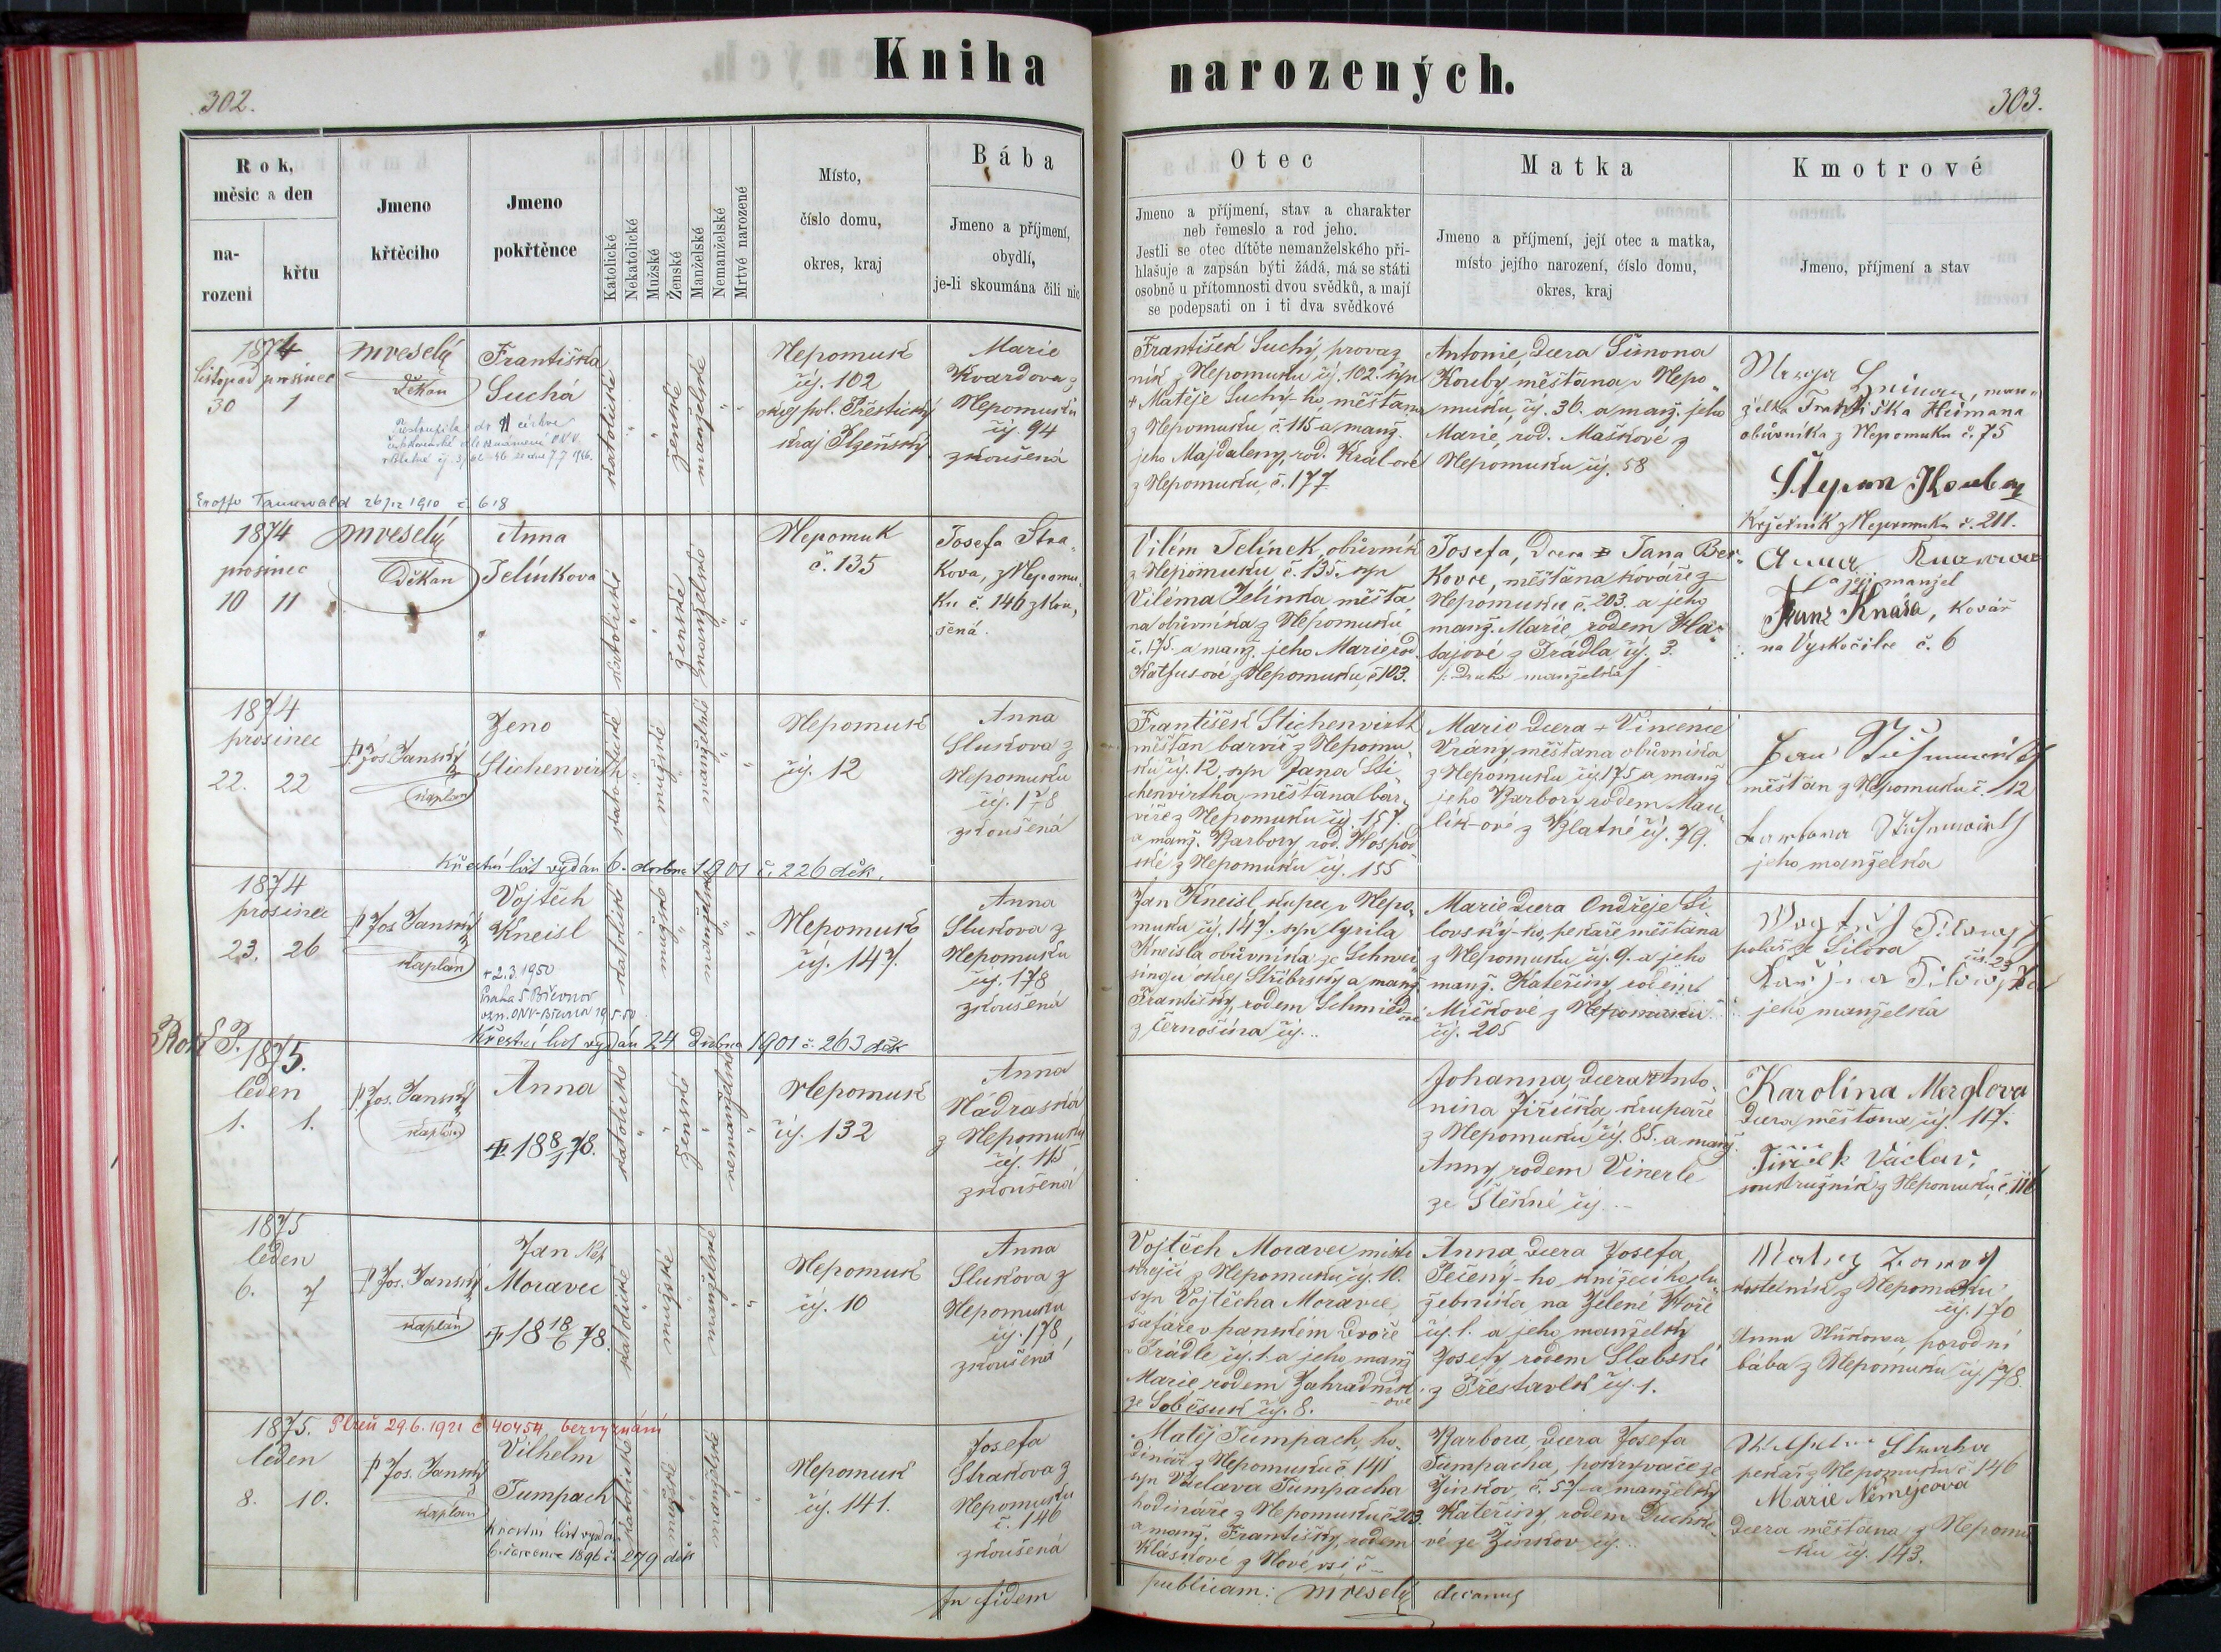 Kniha
narozených.
302.
303.
Rok,
měsíc a den
na-
rozeni
křtu
Jmeno
křtěcího
Jmeno
pokřtěnce
Katolické
Nekatolické
Mužské
Ženské
Manželské
Nemanželské
Mrtvé narozené
Místo,
číslo domu,
okres, kraj
Bába
Jmeno a příjmení,
obydlí,
je-li skoumána čili nic
Otec
Jmeno a příjmení, stav a charakter
neb řemeslo a rod jeho.
Jestli se otec dítěte nemanželského při-
hlašuje a zapsán býti žádá, má se státi
osobně u přítomnosti dvou svědků, a mají
se podepsati on i ti dva svědkové
Matka
Jmeno a příjmení, její otec a matka,
místo jejího narození, číslo domu,
okres, kraj
Kmotrové
Jmeno, příjmení a stav
1874
listopad prosinec
30 1
MVeselý
Děkan
Františka
Suchá
katolické
ženské
manželské
Nepomuk
čj. 102
okrej pol. Přeštický
kraj Plzeňský
Marie
Kvardova z
Nepomuku
čj. 94
zkoušená
František Suchý, provaz
ník z Nepomuku čj. 102. syn
+ Matěje Suchý-ho, měšťana
z Nepomuku č. 115 a manž.
jeho Majdaleny, rod. Král-ové
z Nepomuku, č. 177
Antonie, dcera Šimona
Kouby, měšťana v Nepo-
muku, čj. 36. a manž. jeho
Marie, rod. Maškové z
Nepomuku čj. 58
man-
želka Františka Heřmana
obůvníka z Nepomuku č. 75
Štěpan Kouba
Krejčník z Nepomuku č. 211.
Tannwald 1910 č. 618
1874
prosinec
10 11
MVeselý
Děkan
Anna
Jelínkova
katolické
ženské
manželské
Nepomuk
č. 135
Josefa Stra-
kova, z Nepomu-
ku č. 146 zkou-
šená.
Vilém Jelínek, obůvník
z Nepomuku č. 135. syn
Viléma Jelínka měšťa
na obůvníka z Nepomuku
č. 175. a manž. jeho Marie rod.
Katfusové z Nepomuku, č. 103.
Josefa, Dcera Jana Ber-
kovce, měšťana kováře z
Nepomuku č. 203. a jeho
manž. Marie, rodem Hla-
tajové z Prádla čj. 3.
/: Druhá manželka /
Anna
a její manžel
Franz Knára, kovář
na Vyskočilce č. 6
1874
prosinec
22. 22
P. Jos. Janský
kaplan
Zeno
Stichenwirth
katolické
mužské
manželské
Nepomuk
čj. 12
Anna
Slukova z
Nepomuku
čj. 178
zkoušená
František Stichenvirth
měšťan barvíř z Nepomu-
ku čj. 12, syn Jana Sti-
chenvirtha, měšťana bar-
víře z Nepomuku čj. 157.
a manž. Barbory rod. Hospod
ské z Nepomuku čj. 155
Marie dcera + Vincence
Vrány měšťana obůvníka
z Nepomuku čj. 175 a manž
jeho Barbory rodem Mau-
lík-ové z Blatné čj. 79.
měšťan z Nepomuku č. 12
jeho manželka
Křestní list vydán 6. dubna 1901 č. 226 děk.
1874
prosinec
23. 26
P. Jos. Janský
kaplan
Vojtěch
Kneisl
+ 2.3.1950
Praha 5 Břevnov
katolické
mužské
manželské
Nepomuk
čj. 147.
Anna
Slukova z
Nepomuku
čj. 178
zkoušená
Jan Kneisl, kupec v Nepo-
muku čj. 147. syn Cyrila
Kneisla obůvníka ze Schwei
singu okrej Stříbrský a manž.
Františky, rodem Schmied
z Černošína čj...
Marie dcera Ondřeje Ši-
lovský-ho, pekaře měšťana
z Nepomuku čj. 9. a jeho
manž. Kateřiny rodem
Mičkové z Nepomuku
čj. 205
jeho manželka
Křestní list vydán 24. Dubna 1901 č. 263 děk
Rok P.
1875.
leden
1. 1.
P. Jos. Janský
kaplan
Anna
katolické
ženské
nemanželské
Nepomuk
čj. 132
Anna
Nádraská
z Nepomuku
čj. 115
zkoušená
Johanna, dcera + Anto-
nína Jiříčka, krupaře
z Nepomuku čj. 85. a manž.
Anny, rodem Vinerle
ze Štěkně čj. ..
Karolina Merglova
Dcera měšťana čj. 117.
Jiřiček Václav,
soustružník z Nepomuku, č. 116
1875
leden
6. 7
P. Jos. Janský
kaplan
Jan Nep.
Moravec
katolické
mužské
manželské
Nepomuk
čj. 10
Anna
Slukova z
Nepomuku
čj. 178,
zkoušená
Vojtěch Moravec, mistr
krejčí z Nepomuku čj. 10.
syn Vojtěcha Moravce,
šafáře v panském Dvoře
v Prádle čj. 1. a jeho manž
Marie, rodem Zahradník
ové
ze Soběsuk čj. 8.
Anna dcera Josefa
Pečený-ho, knížecího slu-
žebníka na Zelené Hoře
čj. 1. a jeho manželky
Josefy, rodem Slabské
z Přestavlk čj. 1.
kostelník z Nepomuku
čj. 170
Anna Slukova, porodní
bába z Nepomuku čj. 178.
1875.
Plzeň 29.6.1921 č. 40454 bezvyznání
leden
8. 10.
P. Jos. Janský
kaplan
Vilhelm
Tumpach
Křestní list vydán
6. července 1896 č. 279 děk
katolické
mužské
manželské
Nepomuk
čj. 141.
Josefa
Strakova z
Nepomuku
č. 146
zkoušená
Matěj Tumpach, ho-
dinář z Nepomuku č. 141
syn Václava Tumpacha
hodináře z Nepomuku č. 203.
a manž. Františky, rodem
Kláskove z Nové vsi, č
Barbora, dcera Josefa
Tumpacha, pokryvače ze
Žinkov, č. 57 a manželky
Kateřiny, rodem Duchko-
vé ze Žinkov čj...
pekař z Nepomuku č. 146
Marie Němejcova
Dcera měšťana z Nepomu
ku čj. 143.
In fidem
publicam: MVeselý decanus